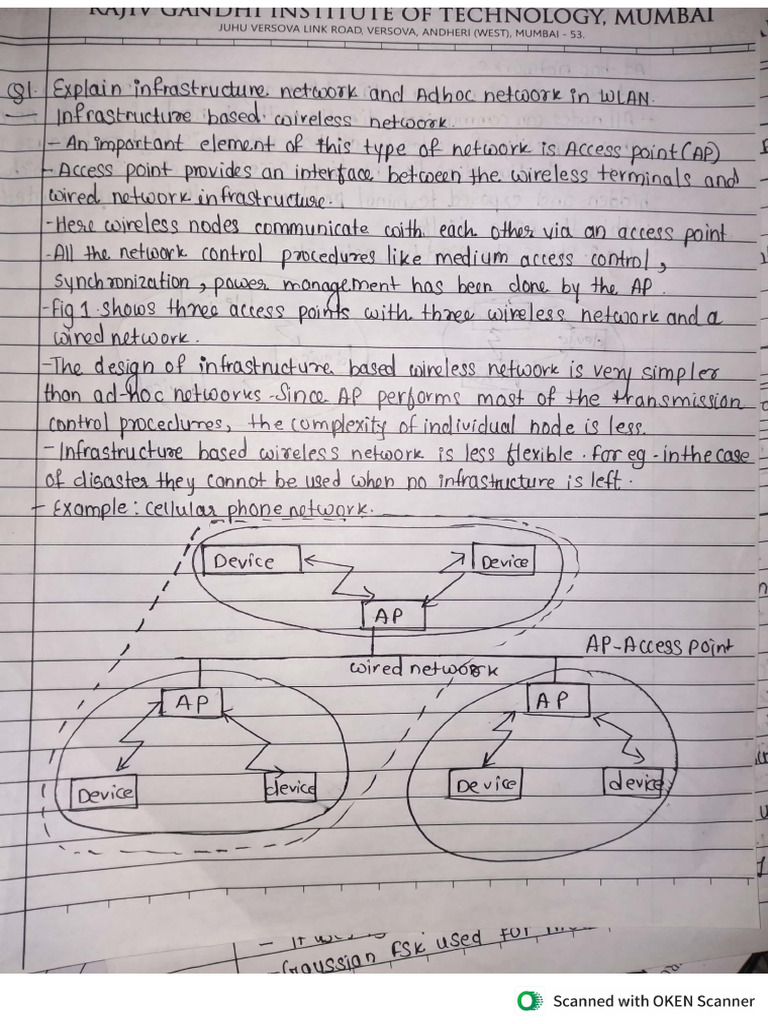 RAJIV GANDHI INSTITUTE OF TECHNOLOGY, MUMBAI
JUHU VERSOVA LINK ROAD, VERSOVA, ANDHERI (WEST), MUMBAI - 53.
Q1. Explain infrastructure network and Adhoc network in WLAN.
— Infrastructure based wireless network.
- An important element of this type of network is Access point (AP)
- Access point provides an interface between the wireless terminals and
wired network infrastructure.
- Here wireless nodes communicate with each other via an access point
- All the network control procedures like medium access control,
synchronization, power management has been done by the AP.
- Fig 1. shows three access points with three wireless network and a
wired network.
- The design of infrastructure based wireless network is very simpler
than ad-hoc networks. Since AP performs most of the transmission
control procedures, the complexity of individual node is less.
- Infrastructure based wireless network is less flexible. for eg - in the case
of disaster they cannot be used when no infrastructure is left.
- Example: cellular phone network.
Device Device
AP
AP-Access Point
wired network
AP AP
Device device Device device
- It
- Gaussian FSK used for
Scanned with OKEN Scanner